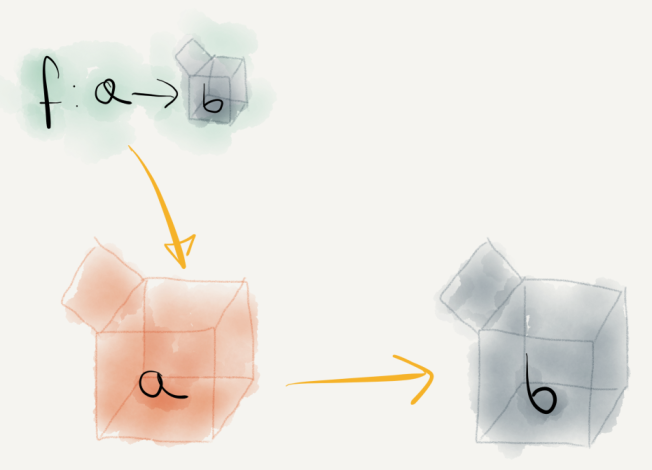 f : a → b
a
b